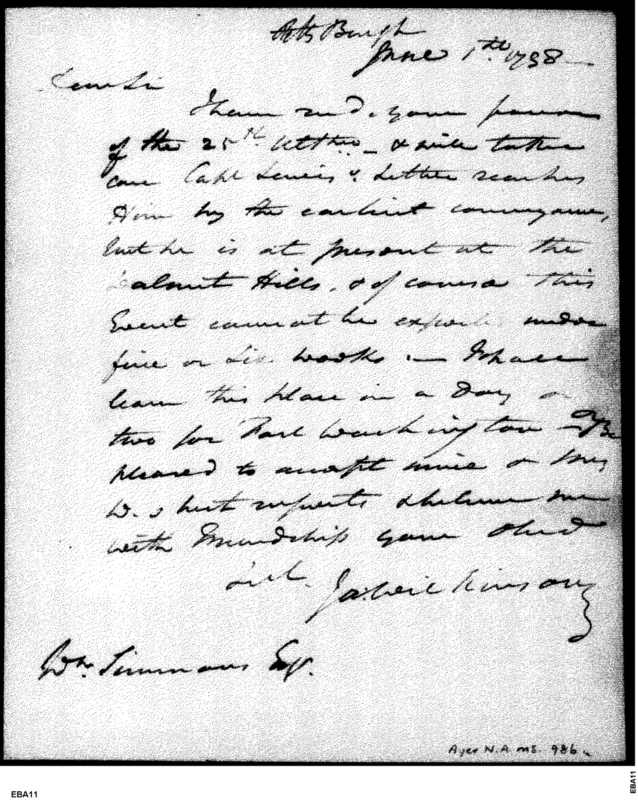 Pitts Burgh
June 1st. 1798
Dear Sir
I have recd. your favor
of the 25th. Ultimo & will take
care Capt Lewis's Letter reaches
Him by the earliest conveyance,
but he is at present at the
Walnut Hills, & of course this
Event cannot be expected under
five or Six weeks — I shall
leave this place in a Day or
two for Fort Washington — Be
pleased to accept mine & Mrs
W.s best respects & believe me
with Friendship your obed
Ja. Wilkinson
Wm. Simmons Esq.
Ayer N.A. MS. 986
EBA11
EBA11